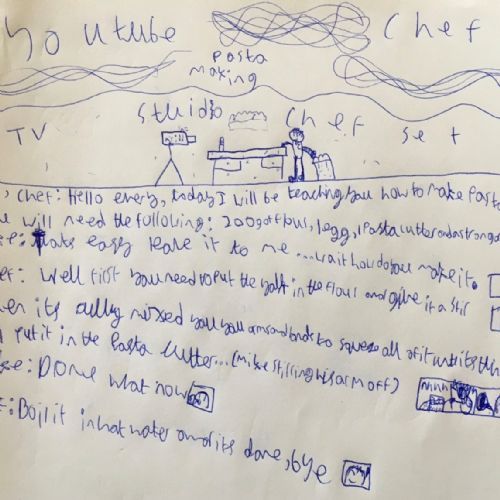 Youtube Chef
Pasta
making
Studio Chef
TV Set
Chef: Hello every, today I will be teaching you how to make Pasta
will need the following: 200g of flour, 1 egg, 1 Pasta cutter and a strong
thats easy leave it to me ... wait how do you make it.
ef: Well first you need to put the yolk in the flour and give it a stir
en its fully mixed you you arms and hands to squeeze all of it until its
Put it in the Pasta cutter... (Mike stirring his arm off)
ke: Done what now
f: Boil it in hot water and its done, bye